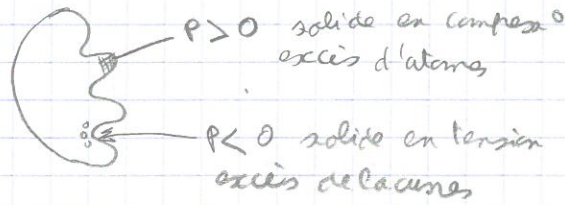 P>0 solide en compress°
excès d'atomes
P<0 solide en tension
excès de lacunes